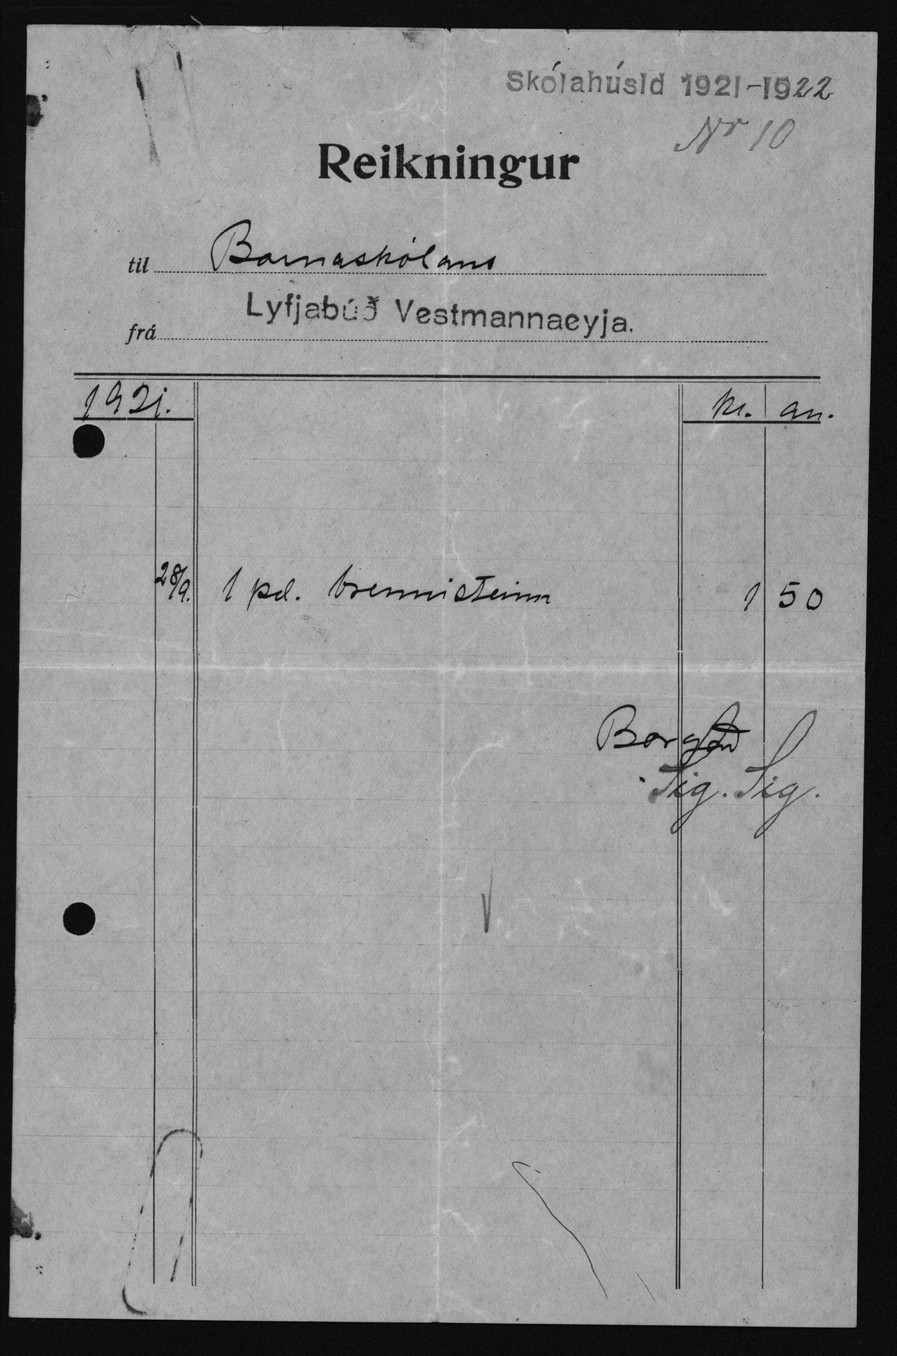 Skólahúsid 1921-1922
Nr 10
Reikningur
til Barnaskólans
frá Lyfjabúð Vestmannaeyja.
1921. kr. au.
28/9. 1 pd. brennisteinn 1 50
Borgað
Sig. Sig.